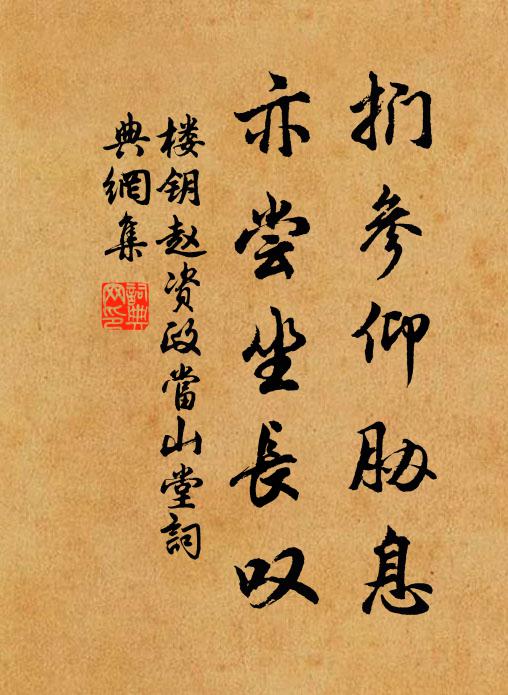 扪参仰胁息
亦尝坐長叹
楼钥赵资政當山堂詞
典網集
詞典网印